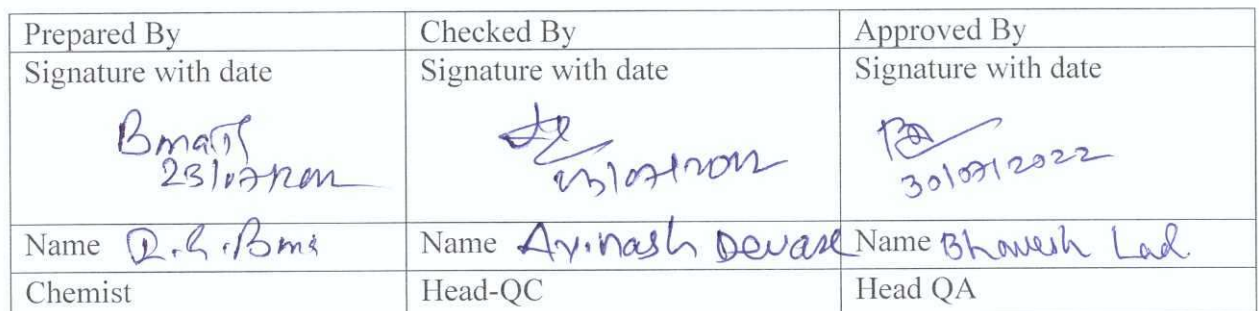 Prepared By Checked By Approved By
Signature with date Signature with date Signature with date
30/07/2022
Name Name Avinash Name Bhavesh Lad
Chemist Head-QC Head QA